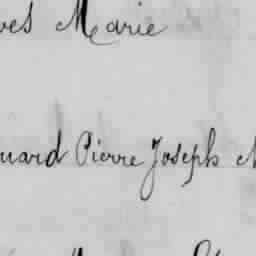 ves Marie
uard Pierre Joseph M